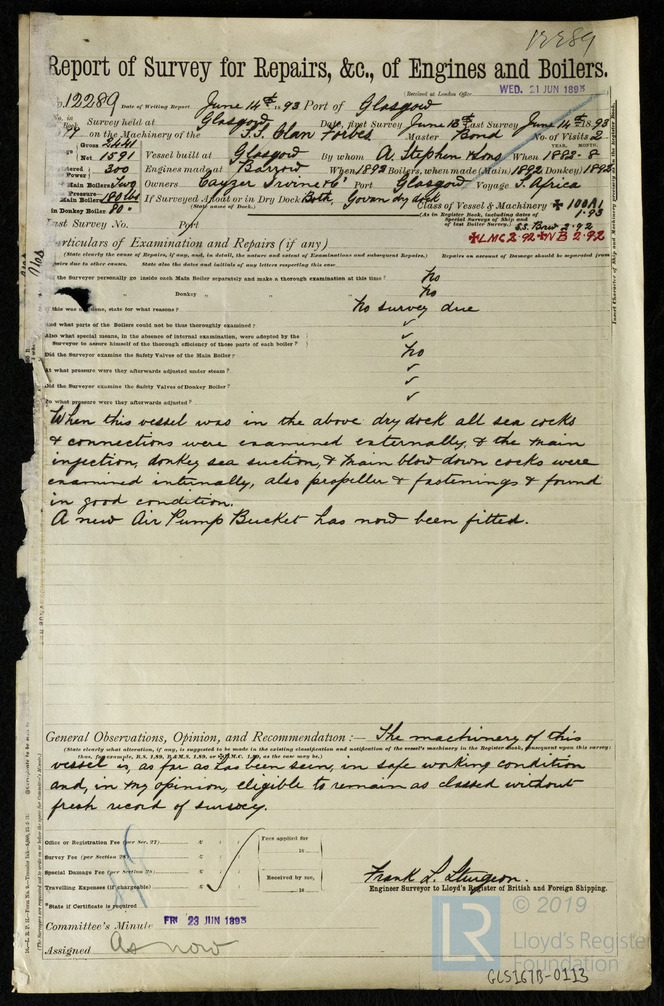 12289
Report of Survey for Repairs, &c., of Engines and Boilers.
(Received at London Office WED. 21 JUN 1893
No. 12289 Date of Writing Report June 14th 1893 Port of Glasgow
No. in Survey held at Glasgow Date, first Survey June 13th Last Survey June 14th 1893
on the Machinery of the S.S. Clan Forbes Master Bond No. of Visits 2
Gross 2441
Net 1591 Vessel built at Glasgow By whom A. Stephen & Sons When 1882-8
YEAR. MONTH.
Power 300 Engines made at Barrow When 1892 Boilers, when made (Main) 1892 (Donkey) 1892
Main Boilers Two Owners Cayzer Irvine & Co Port Glasgow Voyage S. Africa
Pressure
Main Boilers 160 lbs If Surveyed Afloat or in Dry Dock Both, Govan dry dock
(State name of Dock.)
in Donkey Boiler 80 "
Class of Vessel & Machinery ✠ 100A1
(As in Register Book, including dates of Special Surveys of Ship and of last Boiler Survey.) 1.93
S.S. Brw 2.92
✠LMC 2.92 ✠NB 2.92
Last Survey No. Port
Particulars of Examination and Repairs (if any)
(State clearly the cause of Repairs, if any, and, in detail, the nature and extent of Examinations and subsequent Repairs.) Repairs on account of Damage should be separated from
State also the dates and initials of any letters respecting this case
the Surveyor personally go inside each Main Boiler separately and make a thorough examination at this time? No
" Donkey " " No
this was not done, state for what reasons? No survey due
And what parts of the Boilers could not be thoroughly examined? ✓
Also what special means, in the absence of internal examination, were adopted by the
Surveyor to assure himself of the thorough efficiency of those parts of each boiler? ✓
Did the Surveyor examine the Safety Valves of the Main Boiler? No
At what pressure were they afterwards adjusted under steam? ✓
Did the Surveyor examine the Safety Valves of Donkey Boiler? ✓
To what pressure were they afterwards adjusted? ✓
When this vessel was in the above dry dock all sea cocks
& connections were examined externally, & the main
injection, donkey sea suction, & main blow down cocks were
examined internally, also propeller & fastenings & found
in good condition.
A new Air Pump Bucket has now been fitted.
General Observations, Opinion, and Recommendation:— The machinery of this
(State clearly what alteration, if any, is suggested to be made in the existing classification and notification of the vessel's machinery in the Register Book, consequent upon this survey;
thus, for example, B.S. 1.89, B.&M.S. 1.89, or L.M.C. 1.89, as the case may be.)
vessel is, as far as has been seen, in safe working condition
and, in my opinion, eligible to remain as classed without
fresh record of survey.
Office or Registration Fee (per Sec. 27) £ : :
Survey Fee (per Section 28) £ : :
Special Damage Fee (per Section 28) £ : :
Travelling Expenses (if chargeable) £ : :
Fees applied for
18
Received by me,
18
*State if Certificate is required
Frank L. Sturgeon.
Engineer Surveyor to Lloyd's Register of British and Foreign Shipping.
Committee's Minute FRI 23 JUN 1893
Assigned As now
LR
© 2019
Lloyd's Register
Foundation
GLS167B-0113